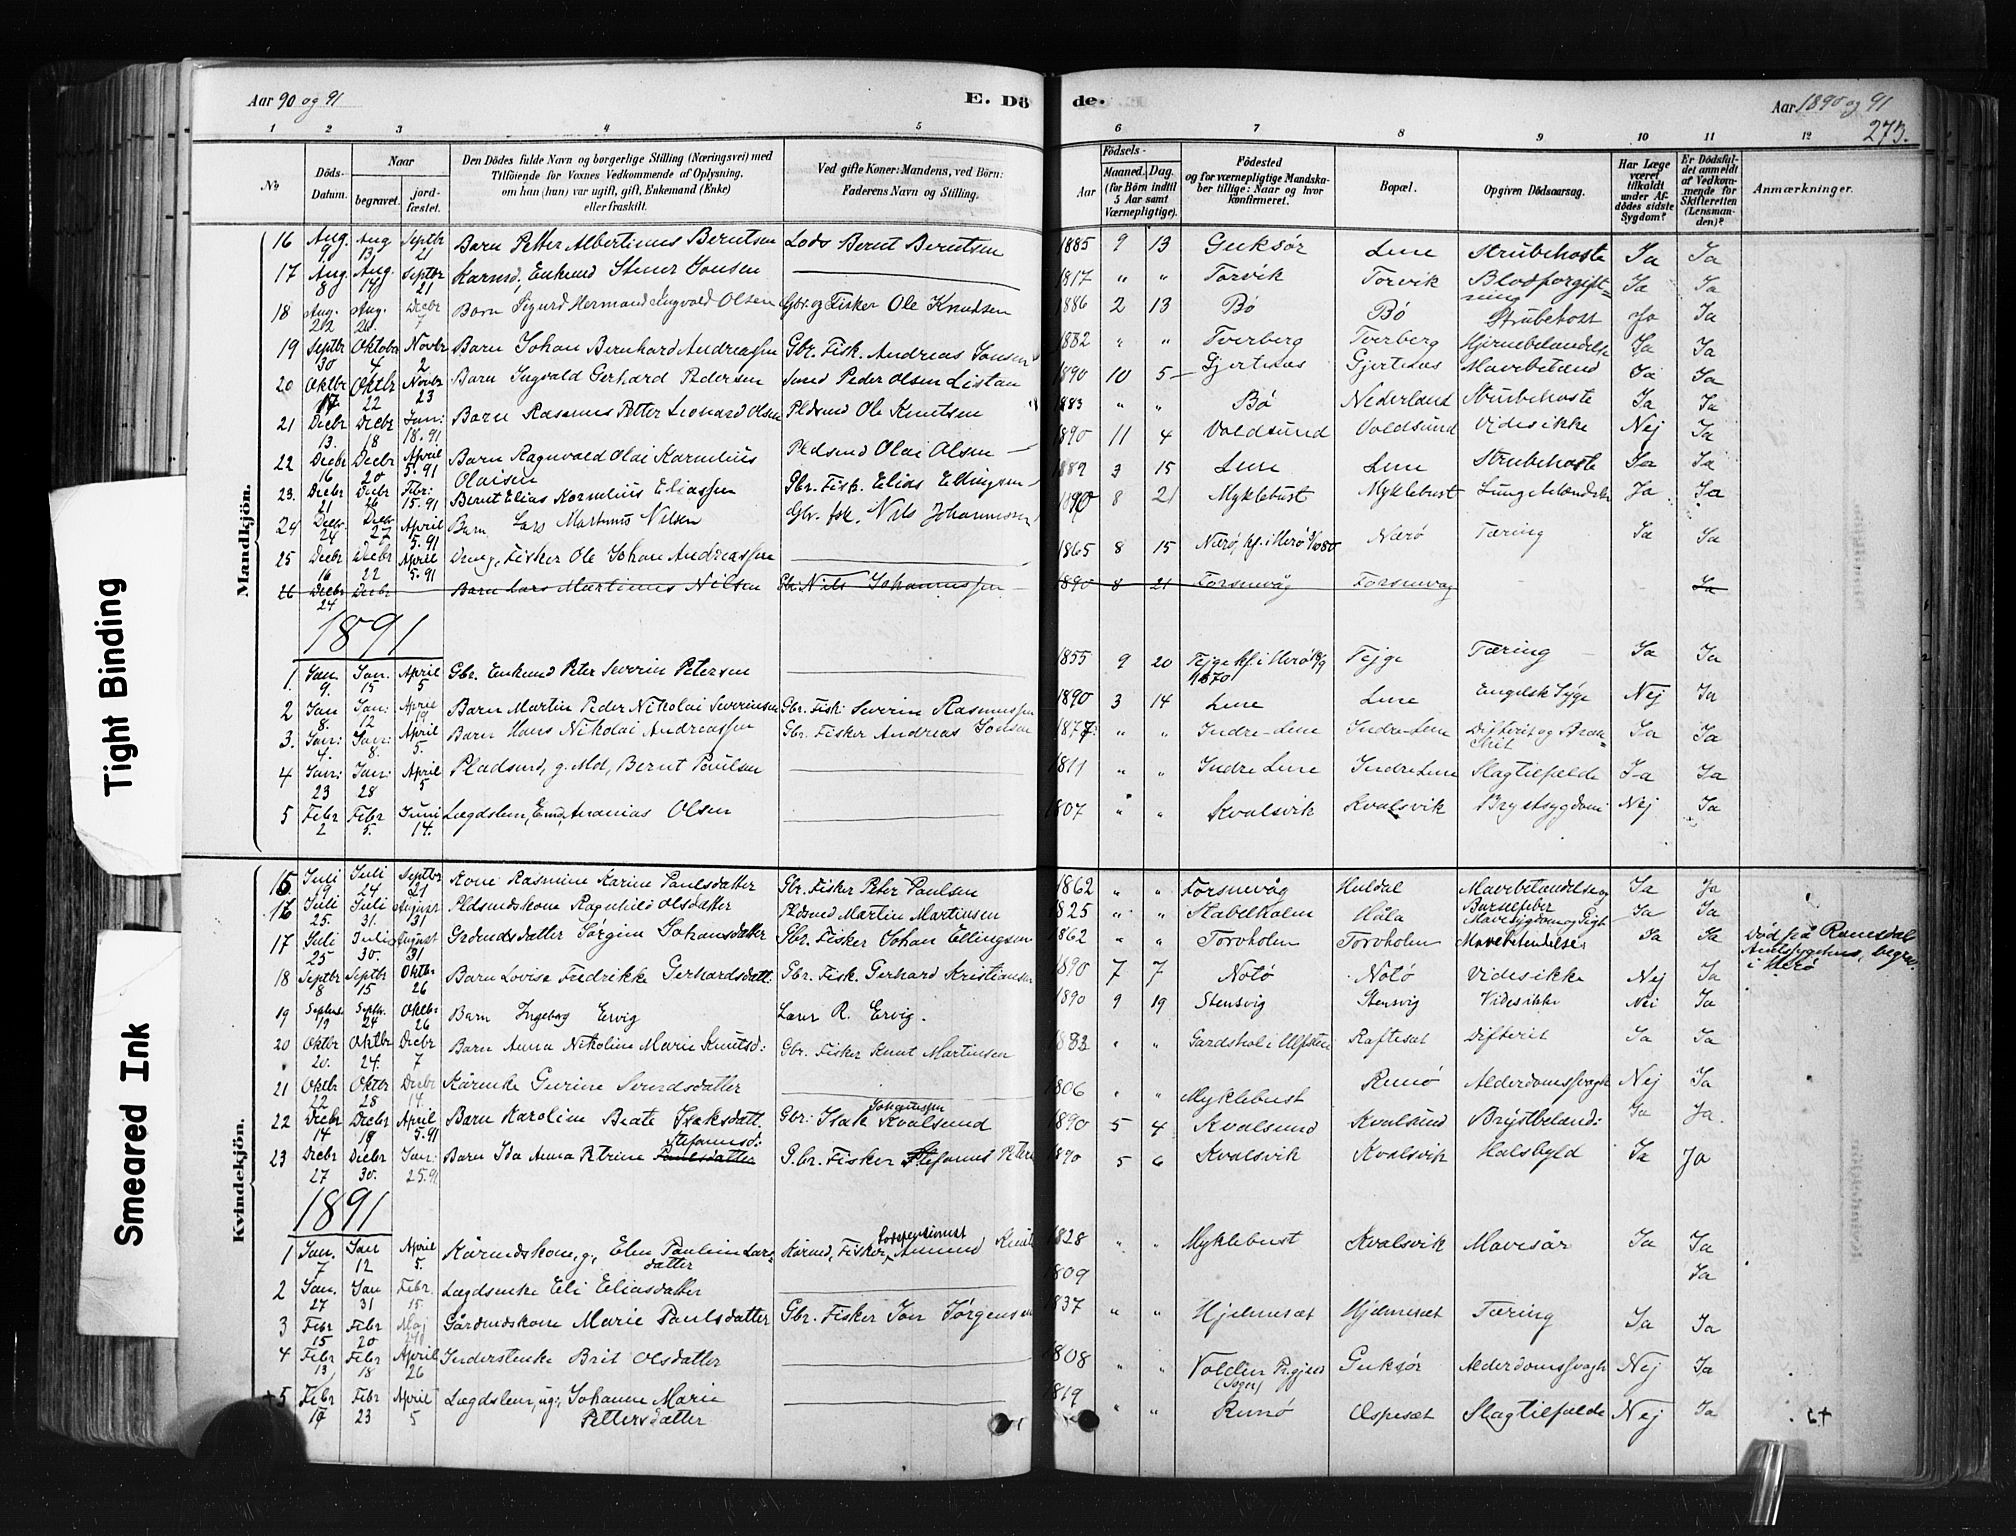 Aar 90 og 91 E. Dö de. Aar 1890 og 91
273.
1 2 3 4 5 6 7 8 9 10 11 12
No. Döds-Datum. Naar begravet. jord-fæstet. Den Dödes fulde Navn og borgerlige Stilling (Næringsvei) med Tilföiende for Voxnes Vedkommende af Oplysning. om han (hun) var ugift, gift, Enkemand (Enke) eller fraskilt. Ved gifte Koner: Mandens, ved Börn: Faderens Navn og Stilling. Födsels- Aar Maaned. Dag. (for Börn indtil 5 Aar samt Værnepligtige). Födested og for værnepligtige Mandska-ber tillige: Naar og hvor konfirmeret. Bopæl. Opgiven Dödsaarsag. Har Læge været tilkaldt under Af-dödes sidste Sygdom? Er Dödsful-det anmeldt af Vedkom-mende for Skifteretten (Lensman-den)? Anmærkninger.
Mandkjön.
16 Aug. 9 Aug 13 Septbr 21 Barn Petter Albertinus Berntsen Lods Bernt Berntsen 1885 9 13 Guksør Lene Strubehoste Ja Ja
17 Aug. 8 Aug. 14 Septbr 21 Kaarmd, Enkemd Stener Jonsen 1817 " " Torvik Torvik Blodforgift-ning Ja Ja
18 Aug. 22 Aug. 26 Decbr 7 Barn Sigurd Hermand Ingvald Olsen Gbr. og Fisker Ole Knudsen 1886 2 13 Bø Bø Strubehost Ja Ja
19 Septbr 30 Oktobr 4 Novbr 2 Barn Johan Bernhard Andreassen Gbr. Fisk. Andreas Jonsen 1882 " " Tverberg Tverberg Hjernebetændelse Ja Ja
20 Oktbr 17 Oktbr 22 Novbr 23 Barn Ingvald Gerhard Pedersen Peder Olsen Listau 1890 10 5 Gjertesås Gjertesås Mavebetænd Ja Ja
21 Decbr 13. Decbr 18 Jan: 18.91 Barn Rasmus Petter Leonard Olsen Pldsmd Ole Knutsen 1883 " " Bø Nederland Strubehoste Ja Ja
22 Decbr 16 Decbr 20 April 5.91 Barn Ragnvald Olai Kornelius Olaisen Pldsmd Olai Olsen 1890 11 4 Voldsund Voldsund Vides ikke Nej Ja
23. Decbr 21 Decbr 26 Febr: 15.91 Bernt Elias Kornelius Eliassen Gbr. Fisk. Elias Ellingsen 1889 3 15 Lene Lene Strubehoste Ja Ja
24 Decbr. 24 Decbr 27 April 5.91 Barn Lars Martinus Nilsen Gbr. fsk. Nils Johannessen 1890 8 21 Myklebust Myklebust Ja Ja
25 Decbr 16 Decbr 22 April 5.91 Ung. Fisker Ole Johan Andreassen 1865 8 15 Nærø, kf. i Herø Nærø Tæring Ja Ja
26 Decbr 24 Decbr Barn Lars Martinus Nilsen Gbr. Nils Johannessen 1890 8 21 Torsnevåg Torsnevåg Ja
1891
1. Jan 9. Jan. 15 April 5 Gbr. Enkemd Peter Severin Petersen 1855 9 20 Tejge kf. i Herø 1870 Tejge Tæring Ja Ja
2 Jan 8. Jan: 12 April 19 Barn Martin Peder Nikolai Severinsen Gbr. Fisk: Severin Rasmussen 1890 3 14 Lene Lene Engelsk Syge Nej Ja
3. Jan: 4. Jan: 8. April 5. Barn Hans Nikolai Andreassen Gbr. Fisker Andreas Jonsen 1877 " " Indre-Lene Indre-Lene Difterit og Ja Ja
4 Jan: 23 Jan: 28 April 5 Pladsmd, g. Md, Bernt Paulsen 1811 " " Indre Lene Indre Lene Slagtilfælde Ja Ja
5 Febr 2 Febr 5. Juni 14. Lægdslem, Emd, Ananias Olsen 1807 " " Kvalsvik Kvalsvik Brystsygdom Nej Ja
Kvindekjön.
15 Juli 19 Juli 24 Septbr 21 Kone Rasmine Karine Paulsdatter Gbr. Fisker Peter Paulsen 1862 " " Torsnevåg Huldal Mavebetændelse og Barselfeber Ja Ja
16 Juli 25. Juli 31. August 31 Pldsmdskone Ragnhild Olsdatter Pldsmd Martin Martinsen 1825 " " Stabelholm Håla Mavesygdom og Gigt Ja Ja
17 Juli 25 Juli 30. August 31 Grdmdsdatter Jørgine Johansdatter Gbr. Fisker Johan Ellingsen 1862 " " Torvholm Torvholm Mavebetændelse Ja Ja Død på Romsdals Amtssygehus, begrav. i Herø
18 Septbr 8 Septbr 15 Oktbr. 26 Barn Lovise Fredrikke Gerhardsdatt: Gbr. Fisk. Gerhard Kristiansen 1890 7 7 Notø Notø Vides ikke Nej Ja
19 Septbr 19 Septbr. 24 Oktbr 26 Barn Ingeborg Ervig Lærer R. Ervig. 1890 9 19 Stensvig Stensvig Vides ikke Nei Ja
20 Oktbr 20. Oktbr 24. Decbr 7 Barn Anna Nikoline Marie Knutsd: Gbr. Fisker Knut Martinsen 1882 " " Gardshol i Ulfsten Raftesæt Difterit Ja Ja
21 Oktbr 22 Oktbr 28 Decbr 14. Kårenke Gurine Svendsdatter 1806 " " Myklebust Runø Alderdomssvagh Nej Ja
22 Decbr 14 Decbr 18 April 5.91 Barn Karoline Beate Isaksdatt. Gbr: Isak Johannssen Kvalsund 1890 5 4 Kvalsund Kvalsund Brystbetænd: Ja Ja.
23 Decbr 27 Decbr 30. Jan: 25.91 Barn Ida Anna Petrine Paulsdatter Stefansd: Gbr. Fisker Stefanus Peters 1890 5 6 Kvalsvik Kvalsvik Halsbyld Ja Ja
1891
1 Jan. 7 Jan 12 April 5. Kårmdskone, g., Elen Pauline Lars-datter Kårmd, Fisker Amund Knuts 1828 " " Myklebust Kvalsvik Mavesår Ja Ja
2 Jan. 27 Jan 31 Febr. 15. Lægdsenke Eli Eliasdatter 1809 Ja
3 Febr 15 Febr 20 Maj 24 Gårdmdskone Marie Paulsdatter Gbr. Fisker Jon Jørgensen 1837 " " Hjelmesæt Hjelmesæt Tæring Ja Ja
4 Febr 13 Febr 18 April 26 Inderstenke Brit Olsdatter 1808 " " Volden Prgjæld (Sogn) Guksør Alderdomssvagh Nej Ja
+5 Febr 19 Febr 23 April 5 Lægdslem, ug., Johanne Marie Pettersdatter 1819 " " Runø Espesæt Slagtilfælde Nej Ja
Tight Binding
Smeared Ink